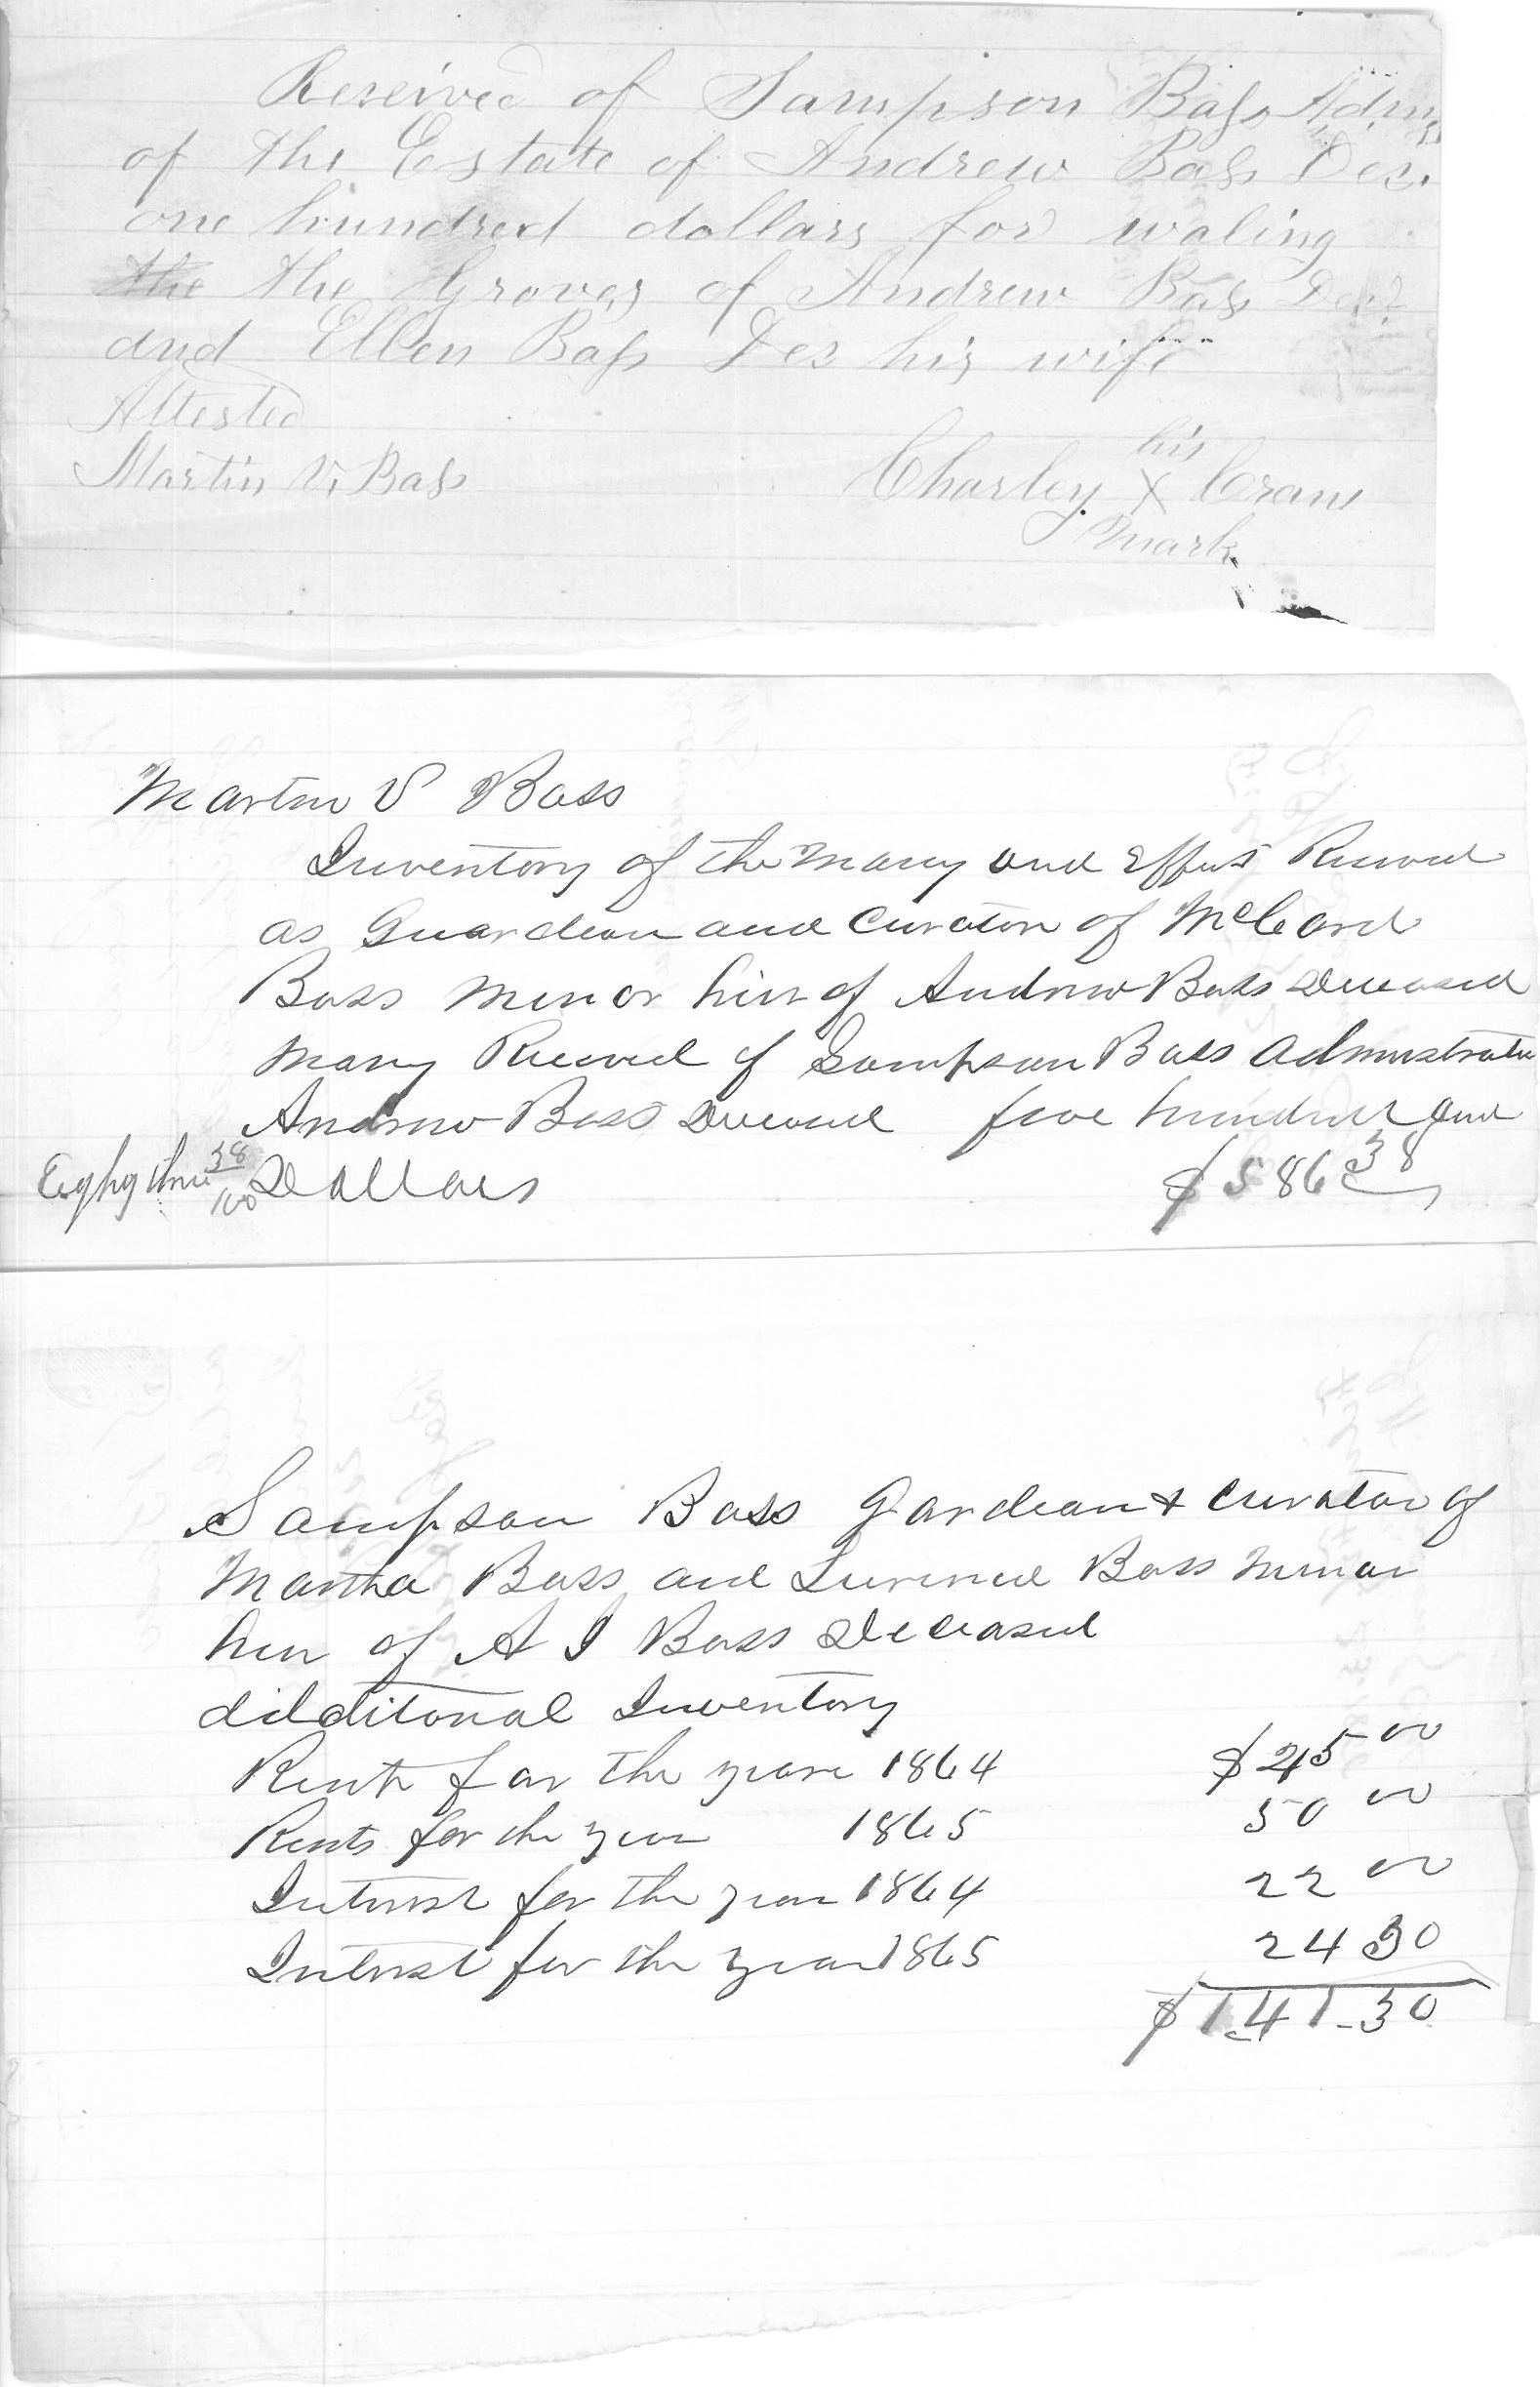 Received of Sampson Bass Adm
of the Estate of Andrew Bass Des.
one hundred dollars for waling
the the Graves of Andrew Bass Des.
and Ellen Bass Des his wife
Attested
Martin V. Bass
his
Charley X Crane
mark
Martin V Bass
Inventory of the Mony and Effects Received
as Guardean and Curator of McCord
Bass minor heir of Andrew Bass Deceased
Mony Received of Sampson Bass Administrator
Andrew Bass Deceased five hundred and
38/100 Dollars $586 38
Sampson Bass Gardean & Curator of
Martha Bass and Bass minor
heir of A J Bass Deceased
Inventory
Rents for the year 1864 $45 00
Rents for the year 1865 50 00
Interest for the year 1864 22 00
Interest for the year 1865 24 30
$141.30